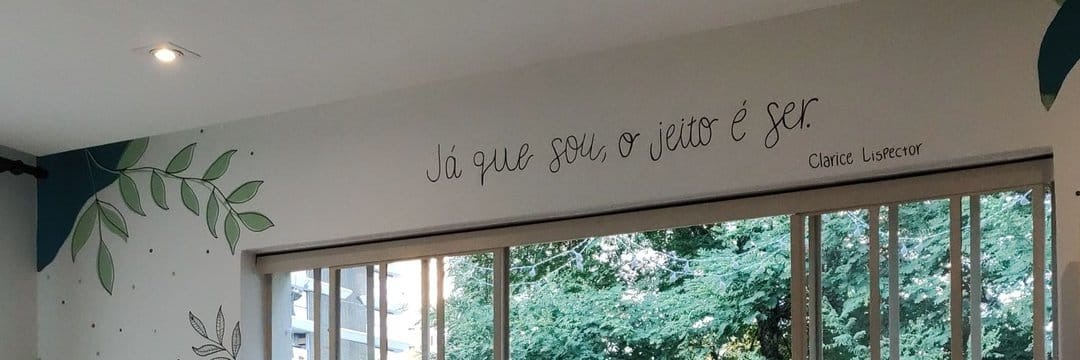 Já que sou, o jeito é ser.
Clarice Lispector